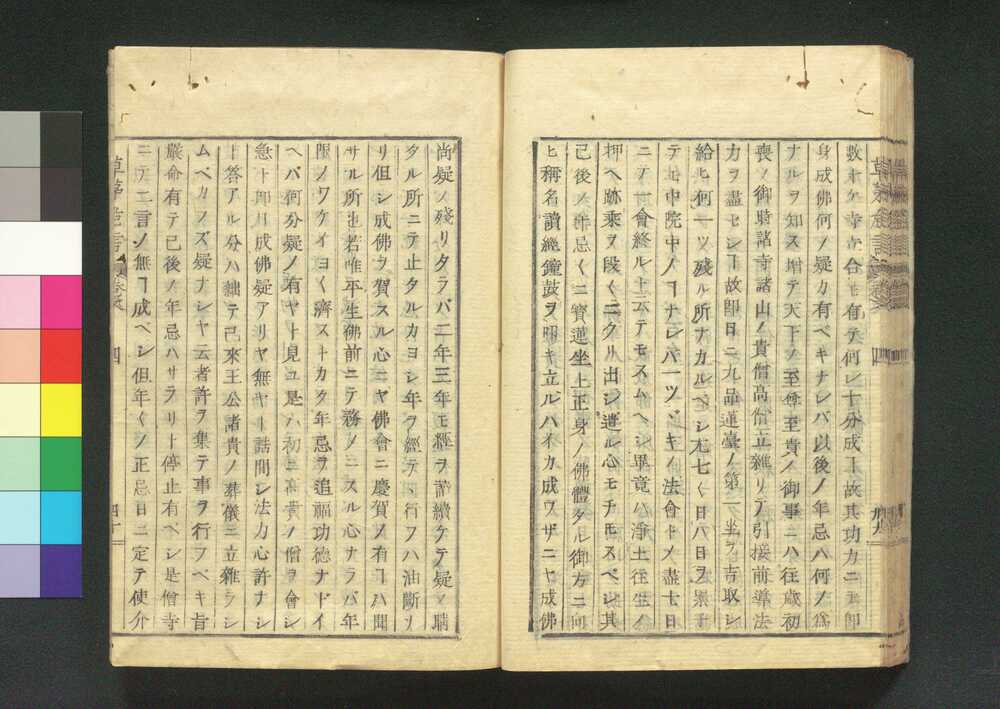 数ホケ寺寺合セ有テ何レ十分成ヿ故其功力ニテ即
身成佛何ノ疑カ有ベキナレバ以後ノ年忌ハ何ノ爲
ナルヲ知ス増テ天下ノ至尊至貴ノ御事ニハ往歳初
喪ノ御時諸寺諸山ノ貴僧高僧立雜リテ引接前導法
力ヲ盡セシヿ故即日ニ九品蓮臺ノ第一坐ヲ吉取シ
給ヒ何一ツ残ル所ナカルベシ尤七く日八日ヲ
テモ中院中ノヿナレバ一ツヅキノ法會トメ盡七日
ニテ一會終ル上云テモスムヘシ畢竟ハ淨土往生ノ
押ヘ跡乘ヲ段くニクリ出シ遣ル心モチモスベシ其
己後ノ年忌くニ寳蓮坐上正身ノ佛體タル御方ニ向
ヒ稱名讀經鐘鼓ヲ叩キ立ルハ不カ成ワザニヤ成佛
尚疑ノ残リタラバ二年三年モ經ヲ讀續ケテ疑ノ晴
タル所ニテ止タルカヨシ年ヲ經テ行フハ油斷ソ
リ但シ成佛ヲ賀スル心ニヤ佛會ニ慶賀ノ有ヿハ聞
サル所也若唯平生佛前ニテ務メニスル心ナラバ年
限ノワケイヨく濟ストカク年忌ヲ追福功德ナドイ
ヘバ何分疑ノ有ヤト見ユ是ハ初ニ高貴ノ僧ヲ會シ
急ト即身成佛疑アリヤ無ヤト詰問シ法力心許ナシ
ト答アル分ハ絀テ己來王公諸貴ノ葬儀ニ立雜ラシ
ムベカラズ疑ナシヤ云者許ヲ集テ事ヲ行フベキ旨
嚴命有テ已後ノ年忌ハサラリト停止有ベシ是僧寺
ニテニ言ノ無ヿ成ベシ但年くノ正忌日ニ定テ使介
草茅危言
四
四十
草茅危言
四
卅九